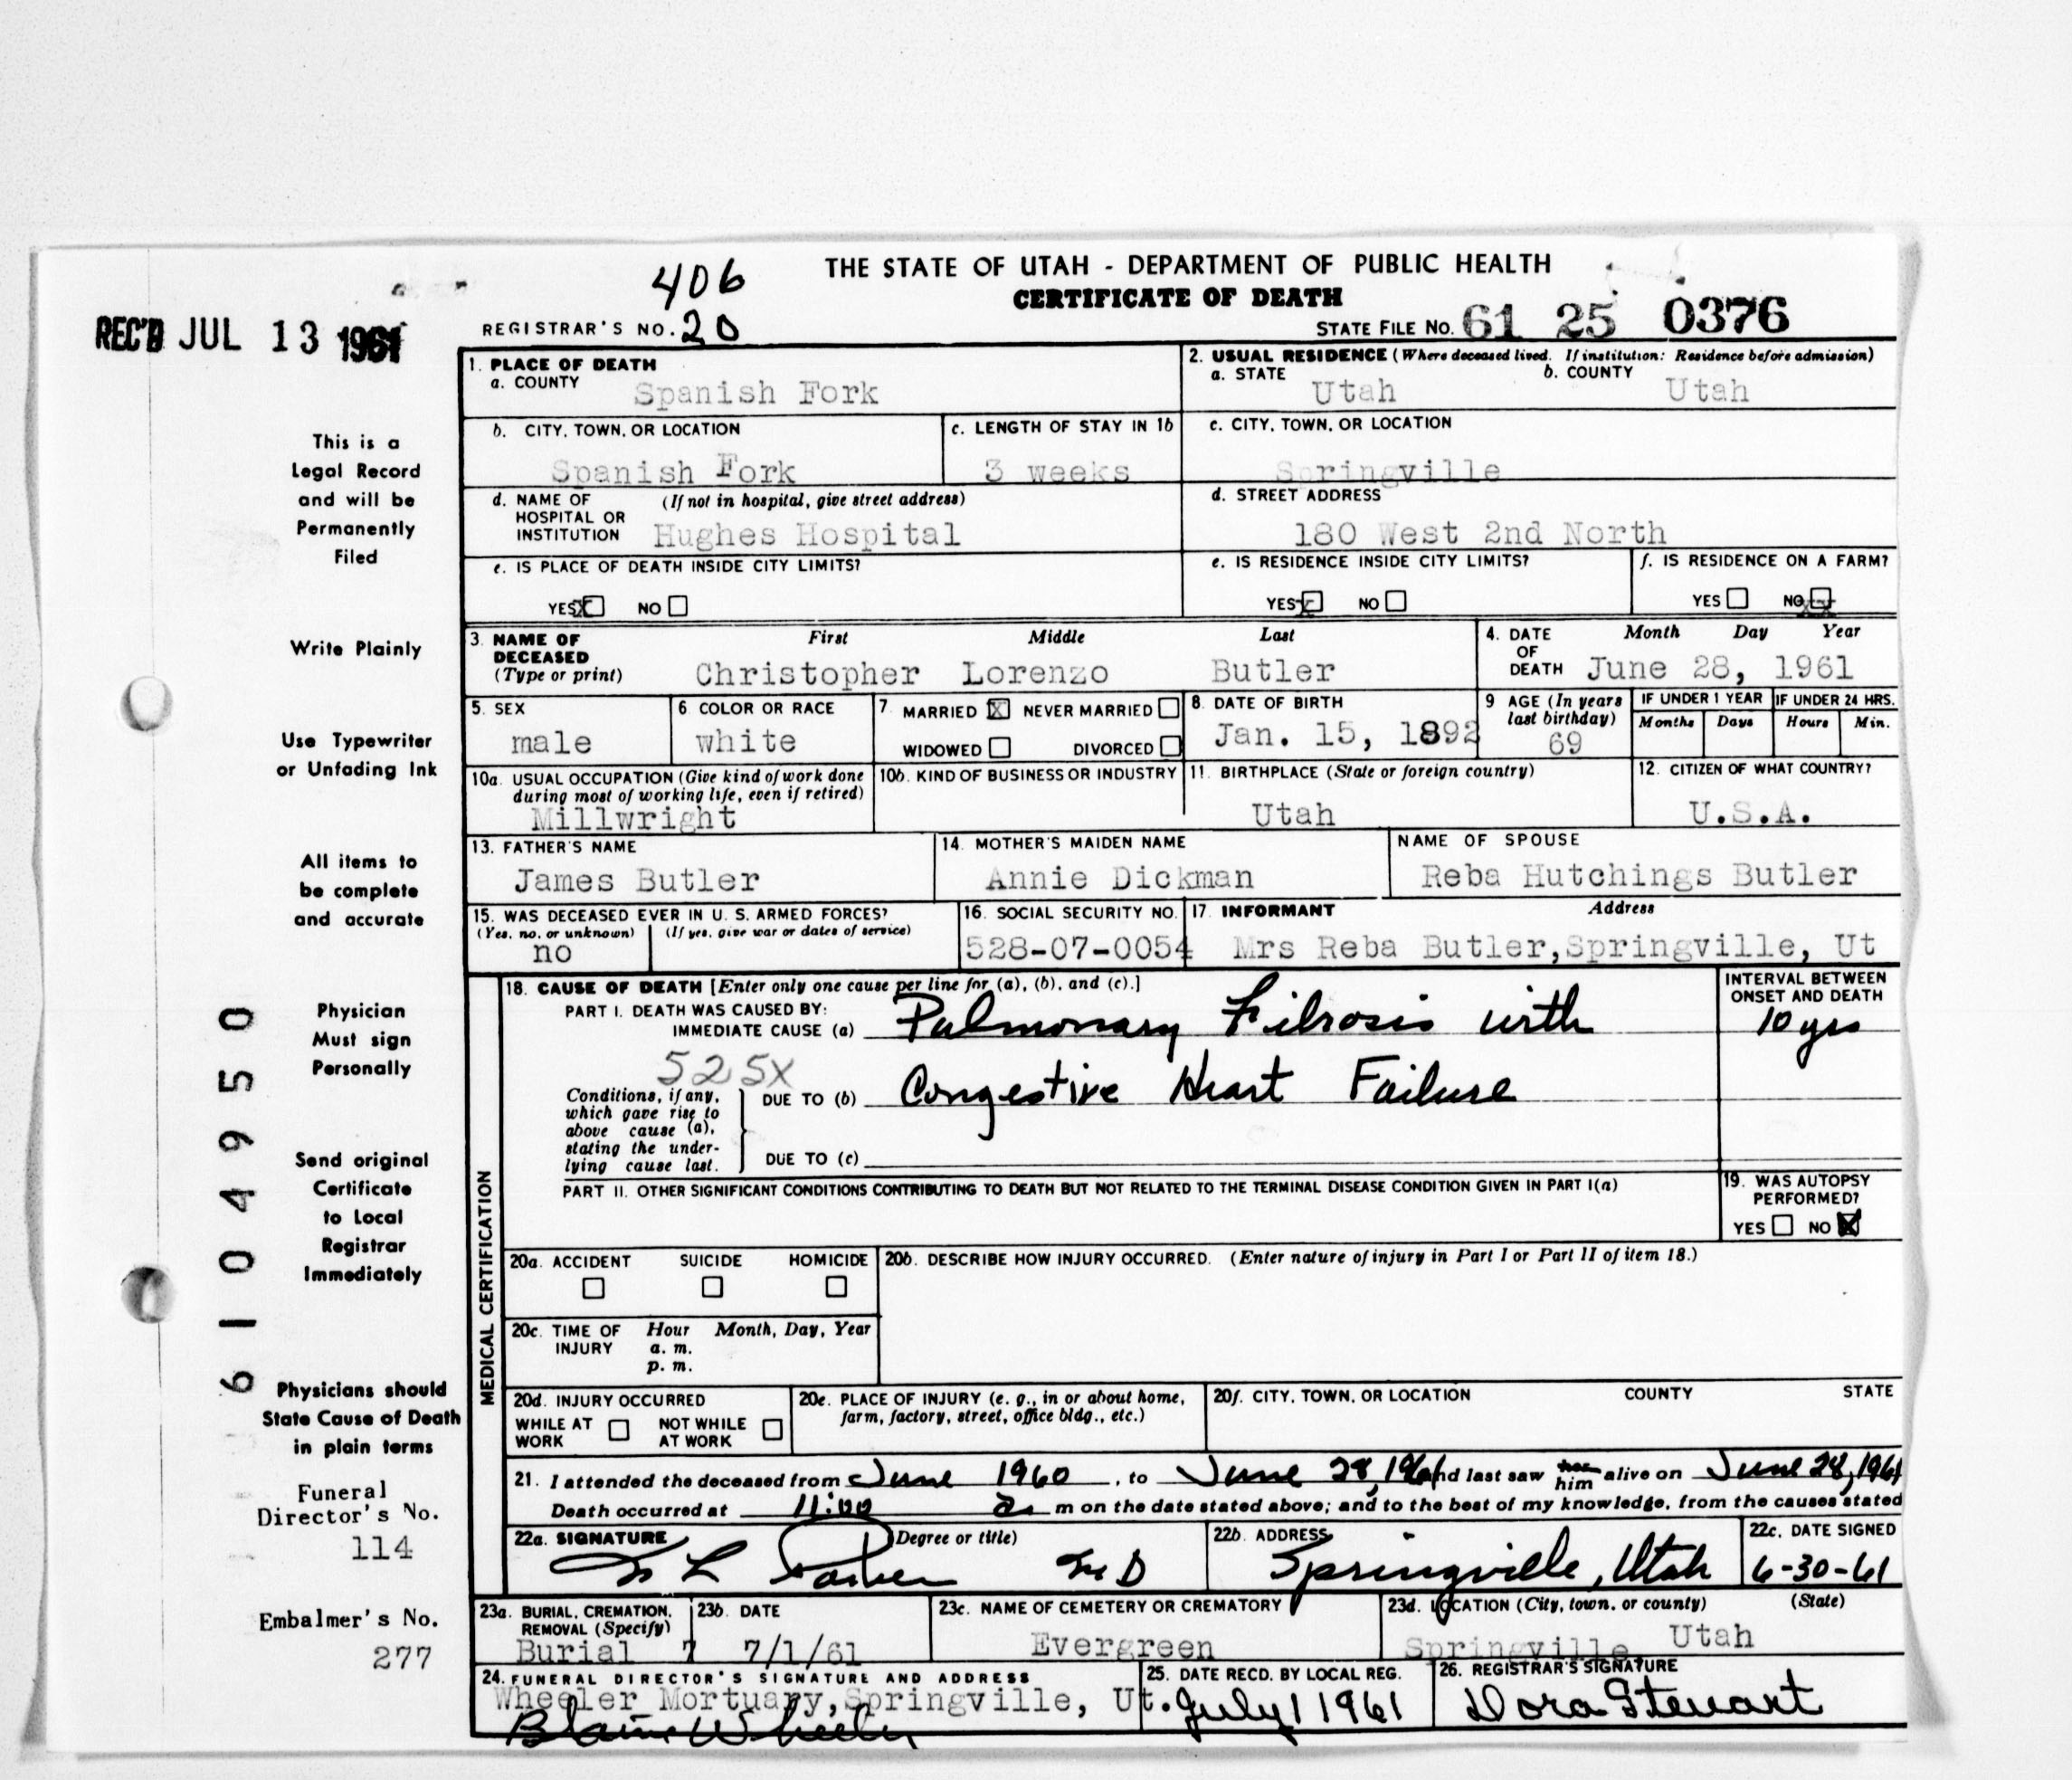 THE STATE OF UTAH - DEPARTMENT OF PUBLIC HEALTH
CERTIFICATE OF DEATH
406
REGISTRAR'S NO. 20
STATE FILE NO. 61 25 0376
REC'D JUL 13 1961
1. PLACE OF DEATH
a. COUNTY
Spanish Fork
2. USUAL RESIDENCE (Where deceased lived. If institution: Residence before admission)
a. STATE b. COUNTY
Utah Utah
b. CITY, TOWN, OR LOCATION
Spanish Fork
c. LENGTH OF STAY IN 1b
3 weeks
c. CITY, TOWN, OR LOCATION
Springville
d. NAME OF (If not in hospital, give street address)
HOSPITAL OR
INSTITUTION Hughes Hospital
d. STREET ADDRESS
180 West 2nd North
e. IS PLACE OF DEATH INSIDE CITY LIMITS?
YES X NO
e. IS RESIDENCE INSIDE CITY LIMITS?
YES X NO
f. IS RESIDENCE ON A FARM?
YES NO XX
3. NAME OF DECEASED (Type or print)
First Middle Last
Christopher Lorenzo Butler
4. DATE OF DEATH
Month Day Year
June 28, 1961
5. SEX
male
6. COLOR OR RACE
white
7. MARRIED X NEVER MARRIED
WIDOWED DIVORCED
8. DATE OF BIRTH
Jan. 15, 1892
9 AGE (In years last birthday)
69
IF UNDER 1 YEAR
Months Days
IF UNDER 24 HRS.
Hours Min.
10a. USUAL OCCUPATION (Give kind of work done
during most of working life, even if retired)
Millwright
10b. KIND OF BUSINESS OR INDUSTRY
11. BIRTHPLACE (State or foreign country)
Utah
12. CITIZEN OF WHAT COUNTRY?
U.S.A.
13. FATHER'S NAME
James Butler
14. MOTHER'S MAIDEN NAME
Annie Dickman
NAME OF SPOUSE
Reba Hutchings Butler
15. WAS DECEASED EVER IN U. S. ARMED FORCES?
(Yes, no, or unknown) (If yes, give war or dates of service)
no
16. SOCIAL SECURITY NO.
528-07-0054
17. INFORMANT Address
Mrs Reba Butler, Springville, Ut
MEDICAL CERTIFICATION
18. CAUSE OF DEATH [Enter only one cause per line for (a), (b), and (c).]
PART I. DEATH WAS CAUSED BY:
IMMEDIATE CAUSE (a) Pulmonary Fibrosis with
525X
Conditions, if any,
which gave rise to
above cause (a),
stating the under-
lying cause last.
DUE TO (b) Congestive Heart Failure
DUE TO (c)
INTERVAL BETWEEN
ONSET AND DEATH
10 yrs
PART II. OTHER SIGNIFICANT CONDITIONS CONTRIBUTING TO DEATH BUT NOT RELATED TO THE TERMINAL DISEASE CONDITION GIVEN IN PART I(a)
19. WAS AUTOPSY
PERFORMED?
YES NO X
20a. ACCIDENT SUICIDE HOMICIDE
20b. DESCRIBE HOW INJURY OCCURRED. (Enter nature of injury in Part I or Part II of item 18.)
20c. TIME OF INJURY
Hour Month, Day, Year
a. m.
p. m.
20d. INJURY OCCURRED
WHILE AT WORK NOT WHILE AT WORK
20e. PLACE OF INJURY (e. g., in or about home,
farm, factory, street, office bldg., etc.)
20f. CITY, TOWN, OR LOCATION COUNTY STATE
21. I attended the deceased from June 1960, to June 28, 1961 and last saw her him alive on June 28, 1961
Death occurred at 11:00 a m on the date stated above; and to the best of my knowledge, from the causes stated
22a. SIGNATURE (Degree or title)
L Parker M D
22b. ADDRESS
Springville, Utah
22c. DATE SIGNED
6-30-61
23a. BURIAL, CREMATION,
REMOVAL (Specify)
Burial 7
23b. DATE
7/1/61
23c. NAME OF CEMETERY OR CREMATORY
Evergreen
23d. LOCATION (City, town, or county) (State)
Springville Utah
24. FUNERAL DIRECTOR'S SIGNATURE AND ADDRESS
Wheeler Mortuary, Springville, Ut.
Blaine Wheeler
25. DATE RECD. BY LOCAL REG.
July 1 1961
26. REGISTRAR'S SIGNATURE
Dora Stewart
This is a
Legal Record
and will be
Permanently
Filed
Write Plainly
Use Typewriter
or Unfading Ink
All items to
be complete
and accurate
Physician
Must sign
Personally
Send original
Certificate
to Local
Registrar
Immediately
Physicians should
State Cause of Death
in plain terms
Funeral
Director's No.
114
Embalmer's No.
277
6104950